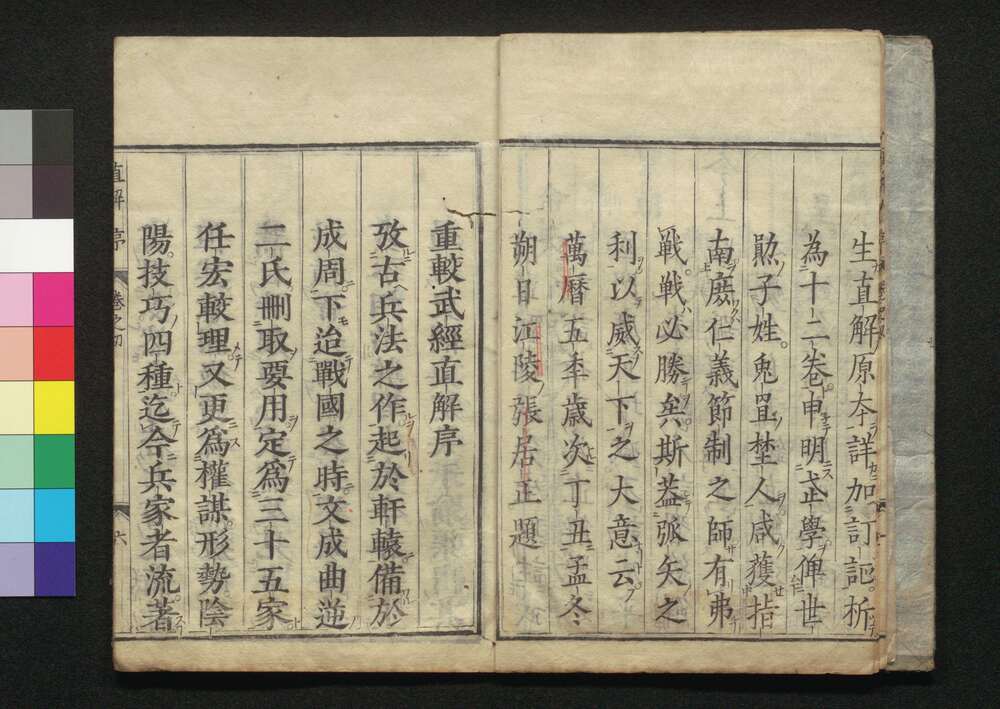 生直解原本詳加訂訛析
為十二卷申明武學俾世
勛子姓兎罝埜人咸獲指
南庶仁義節制之師有弗
戰戰必勝矣斯葢弧矢之
利以威天下之大意云
萬曆五年歲次丁丑孟冬
朔日江陵張居正題
重較武經直解序
攷古兵法之作起於軒轅備於
成周下迨戰國之時文成曲逆
二氏刪取要用定爲三十五家
任宏較理又更爲權謀形勢陰
陽技巧四種迄今兵家者流著
直解 序 卷之初 六